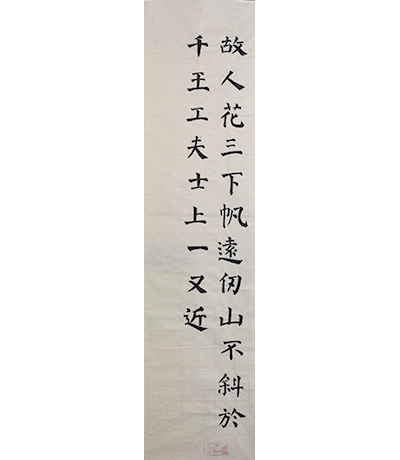 故人花三下帆遠仞山不斜於
千王工夫士上一又近